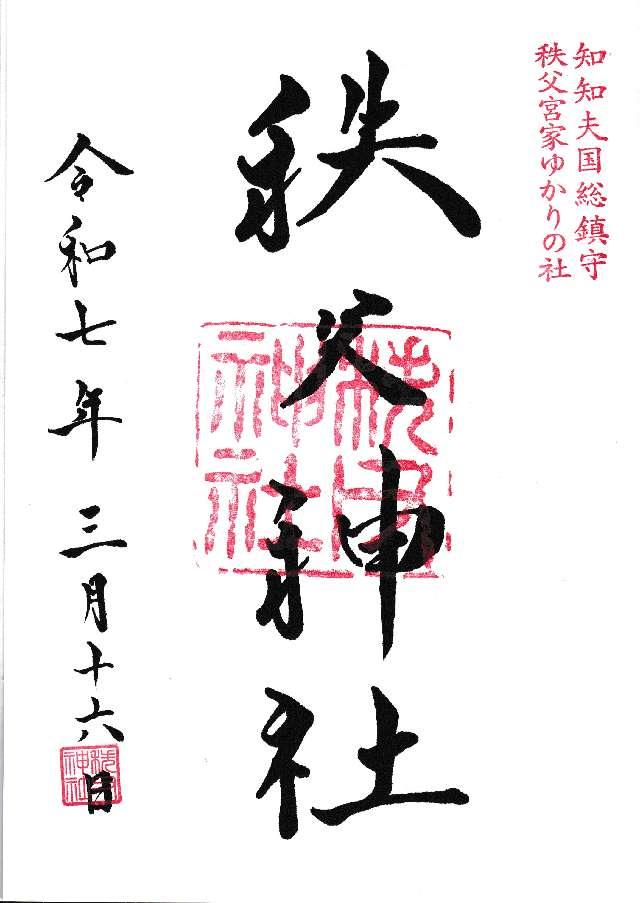 知知夫国総鎮守
秩父宮家ゆかりの社
秩父神社
秩父
神社
令和七年 三月十六日
秩父
神社